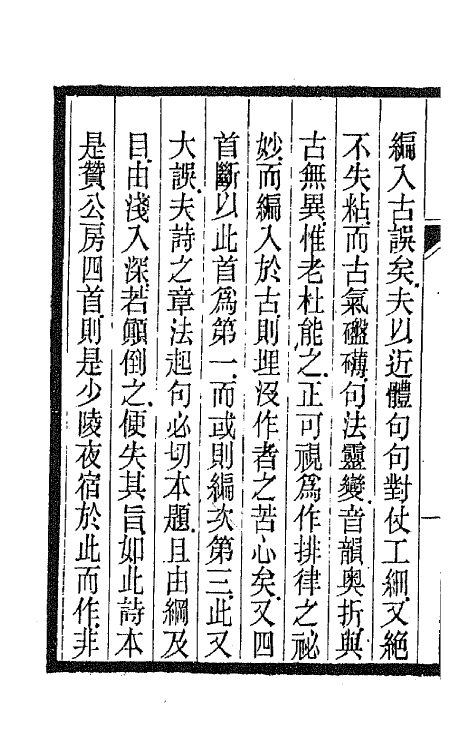 編入古誤矣夫以近體句句對仗工細又絕
不失粘而古氣礧礴句法靈變音韻奥折與
古無異惟老杜能之正可視爲作排律之祕
妙而編入於古則埋沒作者之苦心矣又四
首斷以此首爲第一而或則編次第三此又
大誤夫詩之章法起句必切本題且由綱及
目由淺入深若顚倒之便失其旨如此詩本
是贊公房四首則是少陵夜宿於此而作非